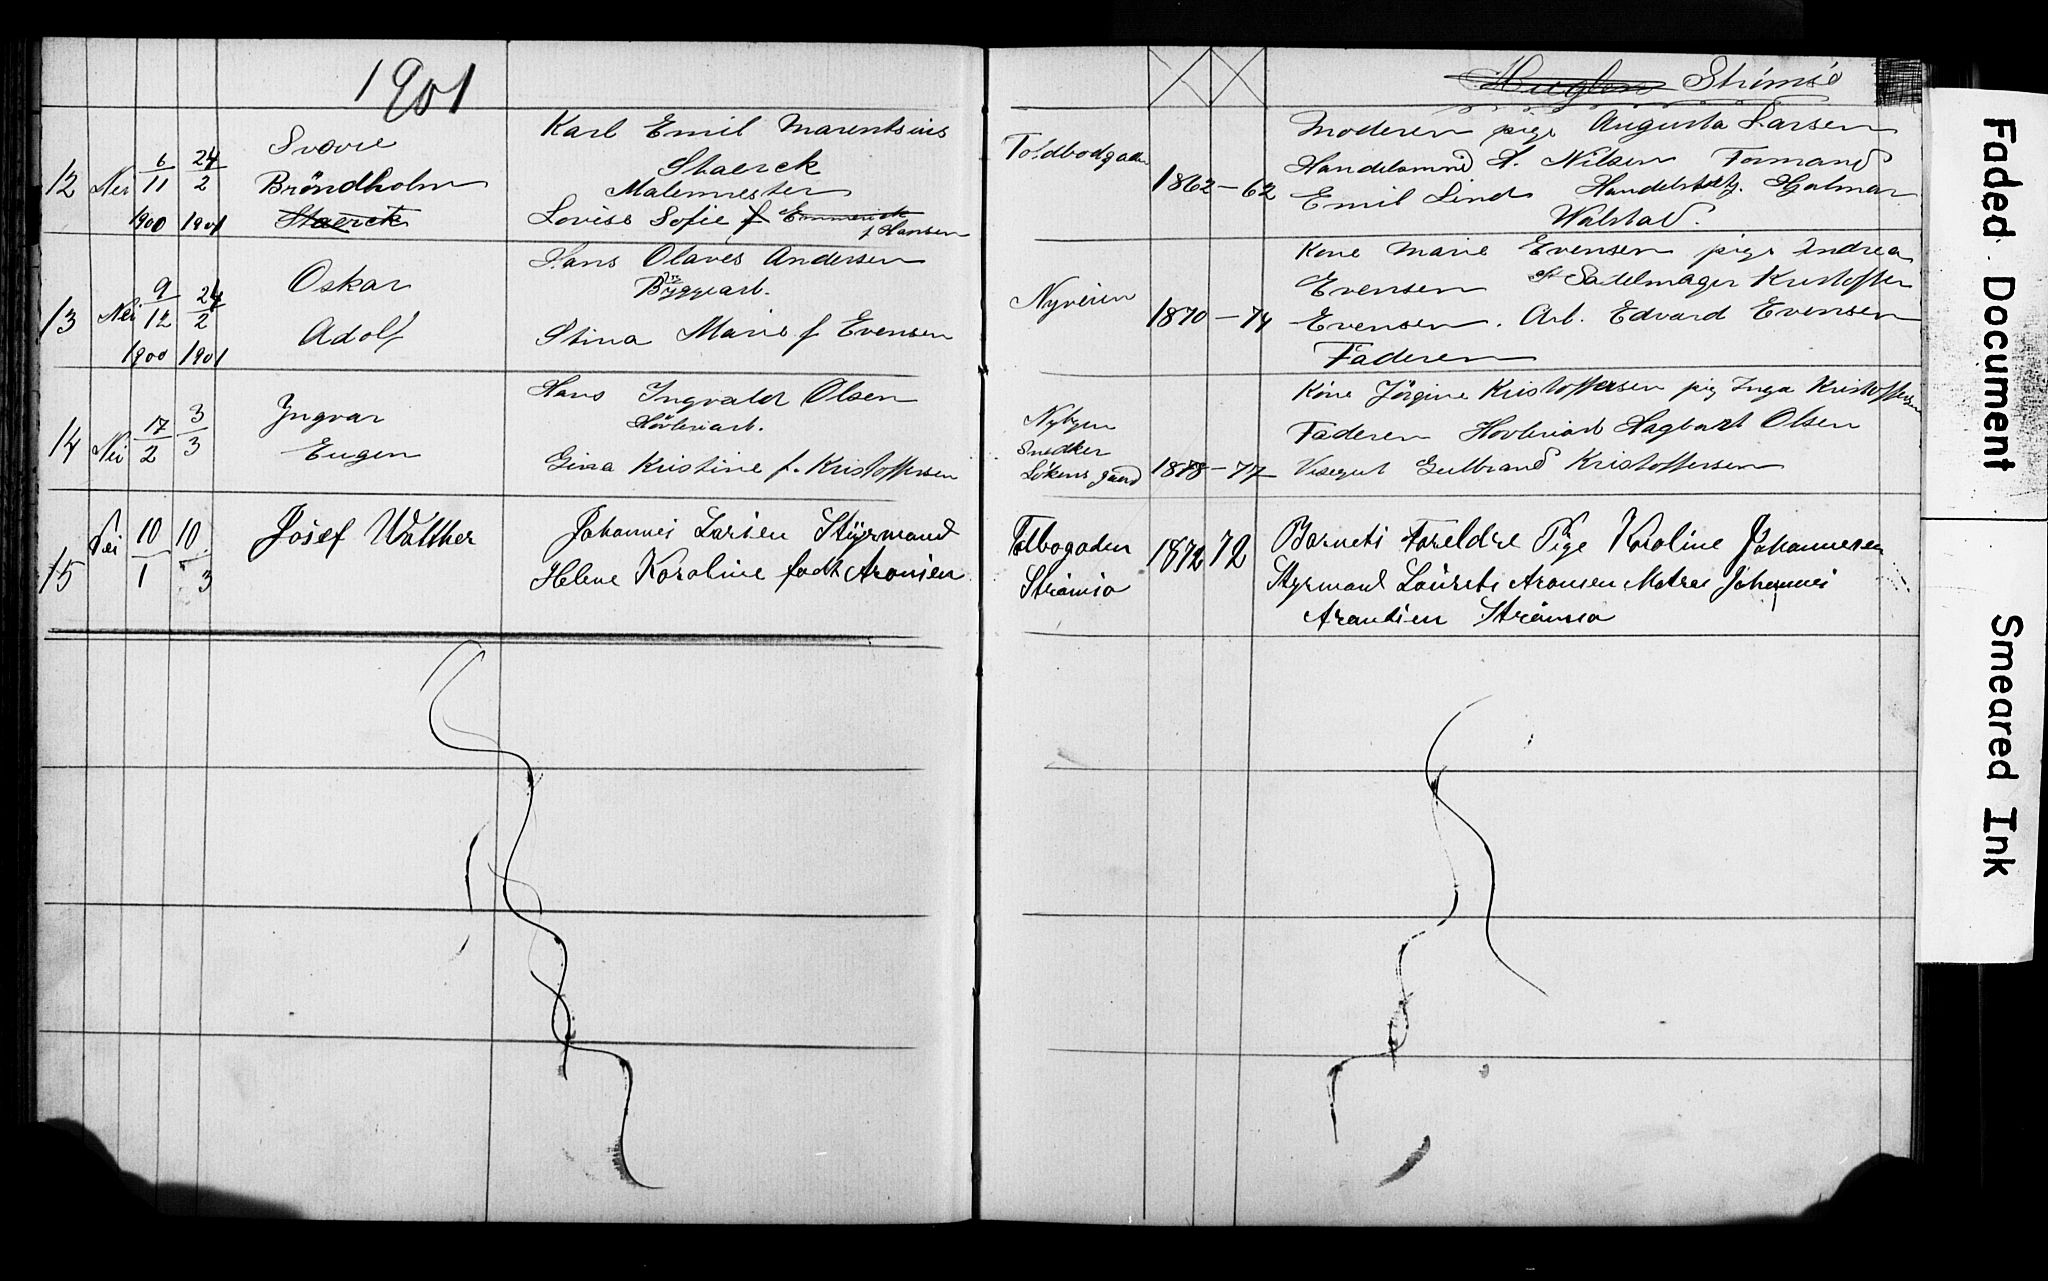 1901
Strömsö
12 Nei 6/11 1900 24/2 1901
Sverre
Bröndholm
Staerck
Karl Emil Marentsius
Staerck
Malermester
Lovise Sofie f Emmerick
f Hansen
Toldbodgaden
1862 – 62
Moderen pige Augusta Larsen
Handelsmnd A. Nilsen Formand
Emil Lind Handelsbetj. Hjalmar
Walstad.
13 Nei 9/12 1900 24/2 1901
Oskar
Adolf
Hans Olaves Andersen
Byggearb.
Stina Marie f Evensen
Nyveien
1870 – 74
Kone Marie Evensen pige Andrea
Evensen Sadelmager Kristoffer
Evensen. Arb. Edvard Evensen
Faderen
14 Nei 17/2 3/3
Yngvar
Eugen
Hans Ingvald Olsen
Hövleriarb.
Gina Kristine f. Kristoffersen
Nybyen
Snedker
Lökens gaard
1878 – 77
Kone Jörgine Kristoffersen pig Inga Kristoffersen
Faderen Hovleriarb Hagbart Olsen
Visergut Gulbrand Kristoffersen
15 Nei 10/1 10/3
Josef Walther
Johannes Larsen Styrmand
Helene Karoline født Aronsen
Tolbogaden
Strömsö
1872 72
Barnets Foreldre Pige Karoline Johannesen
Styrmand Laurets Aronsen Matros Johannes
Arentsen Strömsö
Faded Document
Smeared Ink